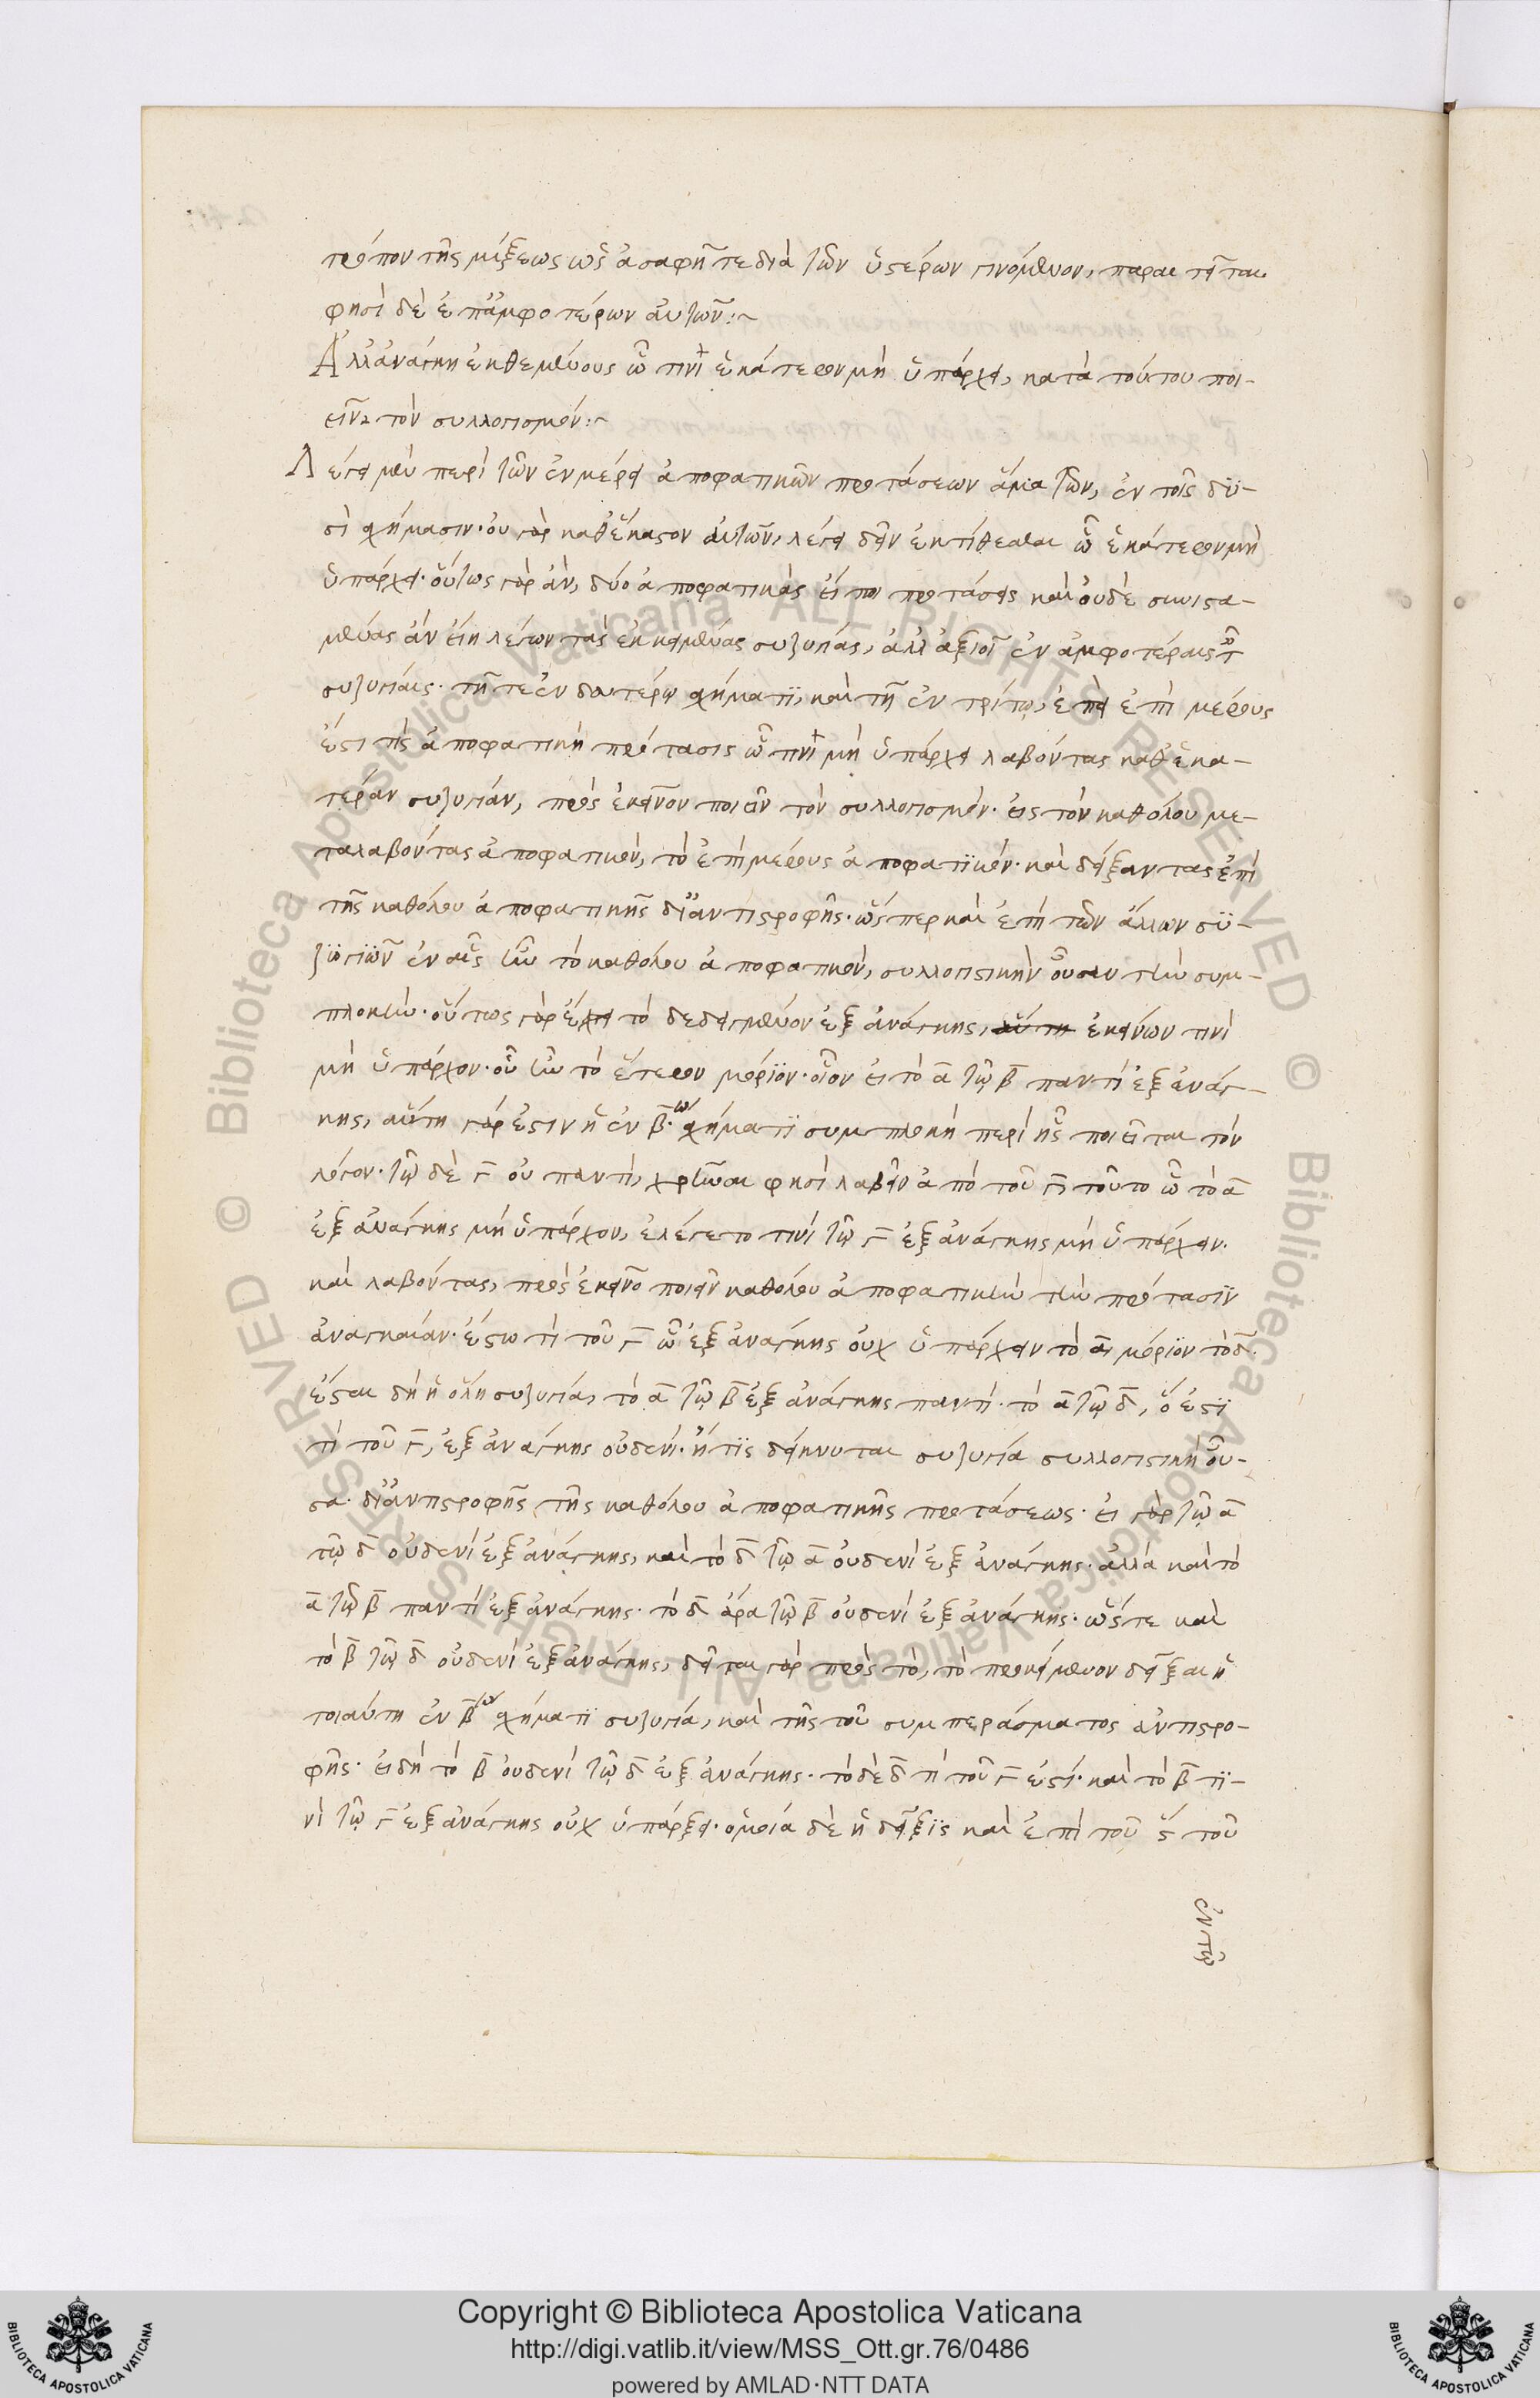 τρόπον τῆς μίξεως ὡς ἀσαφῆ τε διὰ τῶν ὑστέρων γινόμενον, παραιτεῖται
φησὶ δὲ ἐπ' ἀμφοτέρων αὐτῶν:~
Ἀλλ' ἀνάγκη ἐκθεμένους ᾧ τινὶ ἑκάτερον μὴ ὑπάρχει, κατὰ τούτου ποι-
εῖν τὸν συλλογισμόν:~
Λέγει μὲν περὶ τῶν ἐν μέρει ἀποφατικῶν προτάσεων ἅμα τῶν, ἐν τοῖς δϋ-
σὶ σχήμασιν· οὐ γὰρ καθ' ἕκαστον αὐτῶν, λέγει δεῖν ἐκτίθεσθαι ᾧ ἑκάτερον μὴ
ὑπάρχει· οὕτως γὰρ ἂν, δύο ἀποφατικὰς εἴποι προτάσεις καὶ οὐδὲ συνιστα-
μένας ἂν εἴη λέγων τὰς ἐκκειμένας συζυγίας, ἀλλ' ἀξιοῖ ἐν ἀμφοτέραις τ
συζυγίαις· τῆ τε ἐν δευτέρω σχήματϊ, καὶ τῆ ἐν τρίτω, ἐπεὶ ἐπὶ μέρους
ἐστί τίς ἀποφατικὴ πρότασις ᾧ τινὶ μὴ ὑπάρχει λαβόντας καθ' ἑκα-
τέραν συζυγίαν, πρὸς ἐκεῖνον ποιεῖν τὸν συλλογισμόν· εἰς τὸν καθόλου με-
ταλαβόντας ἀποφατικὸν, τὸ ἐπὶ μέρους ἀποφατϊκόν· καὶ δείξαντας ἐπὶ
τῆς καθόλου ἀποφατικῆς δι' ἀντιστροφῆς· ὥσπερ καὶ ἐπὶ τῶν ἄλλων σϋ-
ζϋγϊῶν ἐν αἷς ἦν τὸ καθόλου ἀποφατικὸν, συλλογιστικὴν οὖσαν τὴν συμ-
πλοκήν· οὕτως γὰρ ἔχει τὸ δεδειγμένον ἐξ ἀνάγκης, αὕτη ἐκείνων τινὶ
μὴ ὑπάρχον· οὗ ἦν τὸ ἕτερον μόρϊον· οἷον εἰ τὸ α τῷ β παντὶ ἐξ ἀνάγ-
κης, αὕτη γάρ ἐστιν ἡ ἐν β ω σχήματϊ συμπλοκὴ περὶ ἧς ποιεῖται τὸν
λόγον· τῷ δὲ γ οὐ παντὶ, χρῆναι φησὶ λαβεῖν ἀπὸ τοῦ γ τοῦτο ᾧ τὸ α
ἐξ ἀνάγκης μὴ ὑπάρχον, ἐλέγετο τινὶ τῷ γ ἐξ ἀνάγκης μὴ ὑπάρχειν.
καὶ λαβόντας, πρὸς ἐκεῖνο ποιεῖν καθόλου ἀποφατικὴν τὴν πρότασϊν
ἀναγκαίαν· ἔστω τὶ τοῦ γ ᾧ ἐξ ἀνάγκης οὐχ ὑπάρχειν τὸ α μόρϊον τὸ δ.
ἔσται δὴ ἡ ὅλη συζυγία, τὸ α τῷ β ἐξ ἀνάγκης παντὶ· τὸ α τῷ δ, ὅ ἐστϊ
τὶ τοῦ γ, ἐξ ἀνάγκης οὐδενί· ἥτϊς δείκνυται συζυγία συλλογιστικὴ οὖ-
σα· δι' ἀντιστροφῆς τῆς καθόλου ἀποφατικῆς προτάσεως· εἰ γὰρ τῷ α
τῷ δ οὐδενὶ ἐξ ἀνάγκης, καὶ τὸ δ τῷ α οὐδενὶ ἐξ ἀνάγκης· ἀλλὰ καὶ τὸ
α τῷ β παντὶ ἐξ ἀνάγκης· τὸ δ ἄρα τῷ β οὐδενὶ ἐξ ἀνάγκης· ὥστε καὶ
τὸ β τῷ δ οὐδενὶ ἐξ ἀνάγκης, δεῖται γὰρ πρὸς τὸ, τὸ προκείμενον δεῖξαι ἡ
τοιαύτη ἐν β ω σχήματϊ συζυγία, καὶ τῆς τοῦ συμπεράσματος ἀντιστρο-
φῆς· εἰ δὴ τὸ β οὐδενὶ τῷ δ ἐξ ἀνάγκης· τὸ δὲ δ τὶ τοῦ γ ἐστί· καὶ τὸ β τϊ-
νὶ τῷ γ ἐξ ἀνάγκης οὐχ ὑπάρξει· ὁμοία δὲ ἡ δεῖξϊς καὶ ἐπὶ τοῦ ϛ τοῦ
ἐν τῷ
Copyright © Biblioteca Apostolica Vaticana
http://digi.vatlib.it/view/MSS_Ott.gr.76/0486
powered by AMLAD·NTT DATA